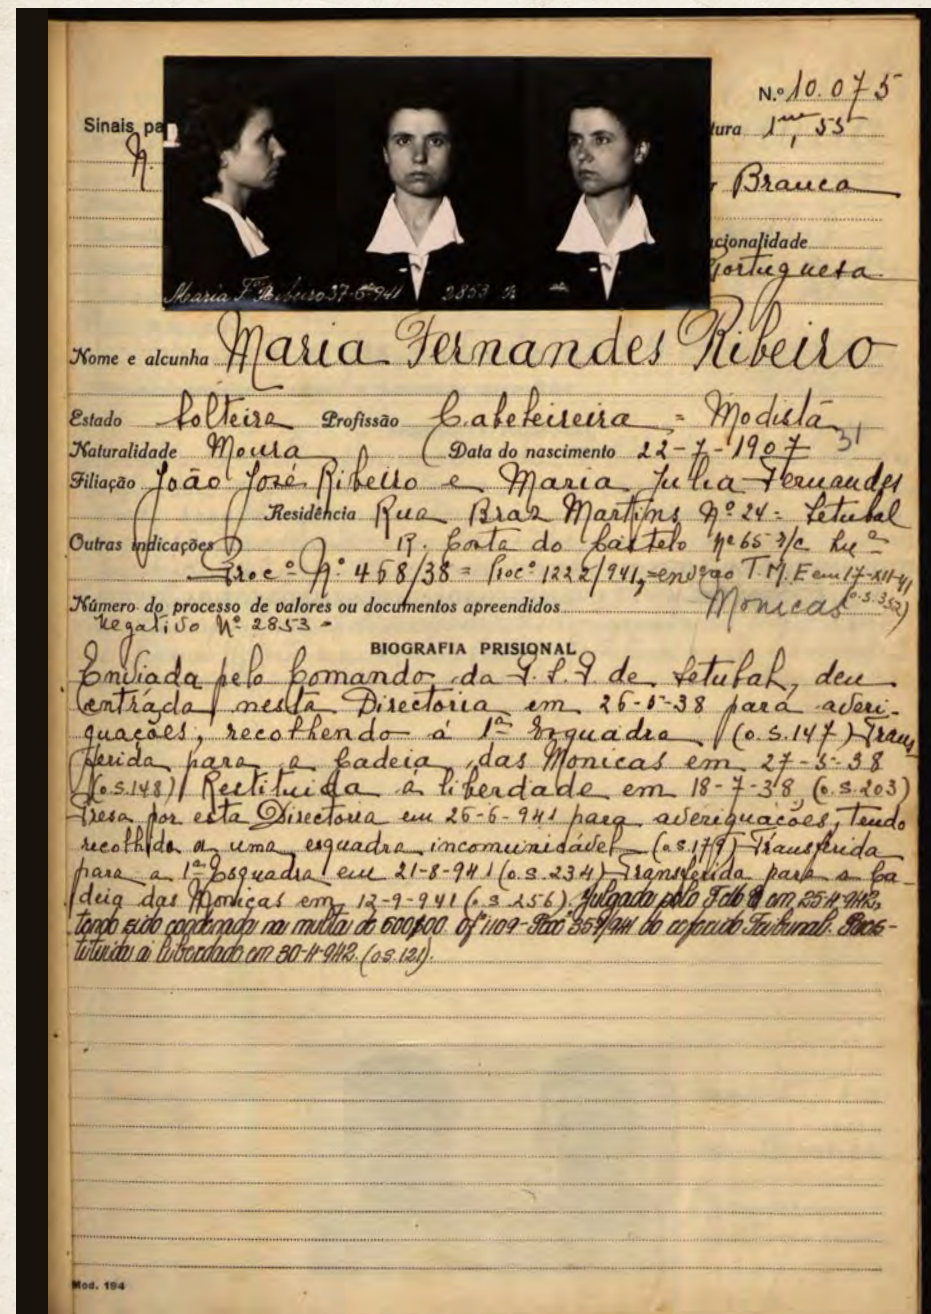 N.º 10.075
Sinais pa
tura 1m, 55
N.
Branca
cionalidade
Portuguesa
Maria F. Ribeiro 941 2853
Nome e alcunha Maria Fernandes Ribeiro
Estado Solteira Profissão Cabeleireira = Modista
Naturalidade Moura Data do nascimento 22-7-1907 31
Filiação João José Ribeiro e Maria Julia Fernandes
Residência Rua Braz Martins Nº 24 = Setubal
Outras indicações R. Costa do Castelo nº 65 r/c
Procº Nº 458/38 = Procº 1222/941, T. M. E em 17-XII-41
Número do processo de valores ou documentos apreendidos Monicas (o.s. 352)
Negativo Nº 2853 =
BIOGRAFIA PRISIONAL
Enviada pelo Comando da P. S. P de Setubal, deu
entrada nesta Directoria em 26-5-38 para averi-
guações, recolhendo á 1ª Esquadra (o.s.147) Trans
ferida para a Cadeia das Monicas em 27-5-38
(o.s.148) Restituida á liberdade em 18-7-38, (o.s.203)
Presa por esta Directoria em 26-6-941 para averiguações, tendo
recolhido a uma esquadra incomunicável (o.s.179) Transferida
para a 1ª Esquadra em 21-8-941 (o.s.234) Transferida para a Ca-
deia das Monicas em 12-9-941 (o.s.256). Julgada pelo em 25-4-942,
tendo sido condenada na multa de 600$00. Ofº 1109-Procº 359/941 do referido Tribunal. Res-
tituida á liberdade em 30-4-942. (o.s.121).
Mod. 194